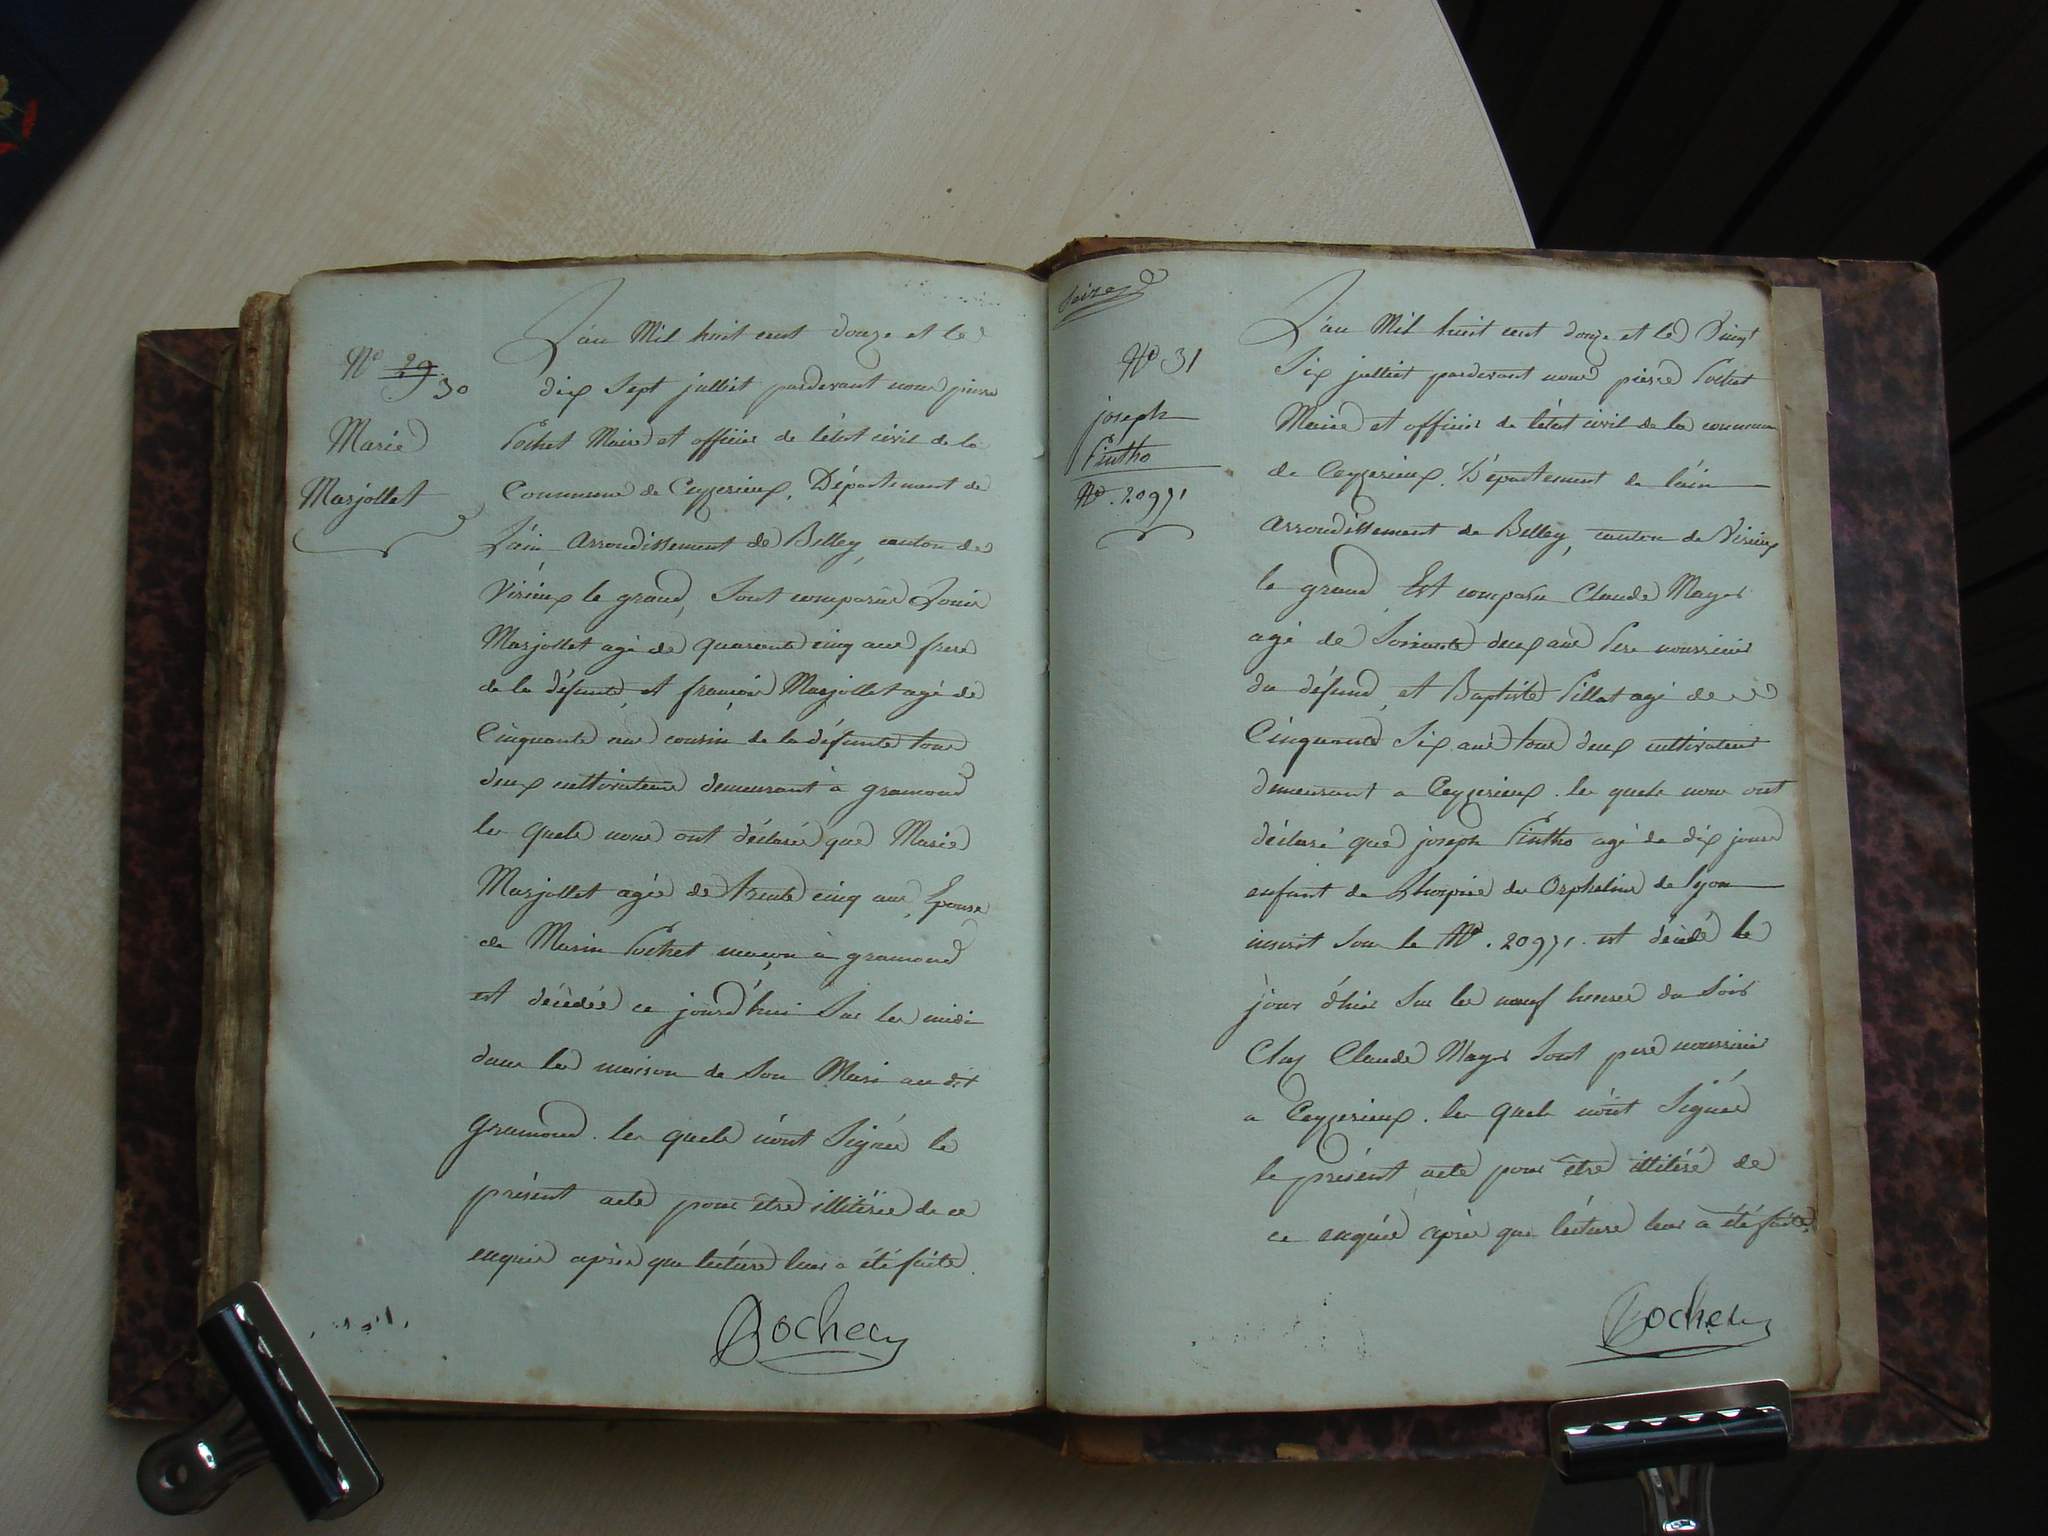 N° 29
30
Marie
Marjollet
L'an Mil huit cent douze et le
dix Sept julliet pardevant nous pierre
Pochet Maire et officier de l'état civil de la
Commune de Ceyzerieux, Département de
L'ain Arrondissement de Belley, canton de
Virieux le grand, Sont comparus Louis
Marjollet agé de quarante cinq ans frere
de la défunte, et françois Marjollet agé de
Cinquante ans cousin de la défunte tous
deux cultivateurs demeurant à gramond
les quels nous ont déclaré que Marie
Marjollet agée de trente cinq ans, Epouse
de Marin Pochet maçon à gramond
est décédée ce jourd'hui Sur les midi
dans la maison de Son Mari au dit
gramond. les quels n'ont Signée le
présent acte pour être illitérée de ce
enquis après que lecture leur a été faite.
Pochet
Seize
N° 31
joseph
Pintho
N°. 20971
L'an Mil huit cent douze et le Vingt
Six julliet pardevant nous pierre Pochet
Maire et officier de l'état civil de la commune
de Ceyzerieux. Département de l'ain
Arrondissement de Belley, canton de Virieux
le grand Est comparu Claude Mayer
agé de Soixante deux ans Pere nourricier
du défund, et Baptiste Pillat agé de
Cinquante Six ans tous deux cultivateurs
demeurant a Ceyzerieux. les quels nous ont
déclaré que joseph Pintho agé de dix jours
enfant de L'hospice des Orphelins de lyon
inscrit Sous le N°. 20971. est décédé le
jour d'hier Sur les neuf heures du Soir
Chez Claude Mayer Sont pere nourricier
a Ceyzerieux. les quels n'ont Signée
le présent acte pour être illitéré de
ce enquis après que lécture leur a été faite.
Pochet